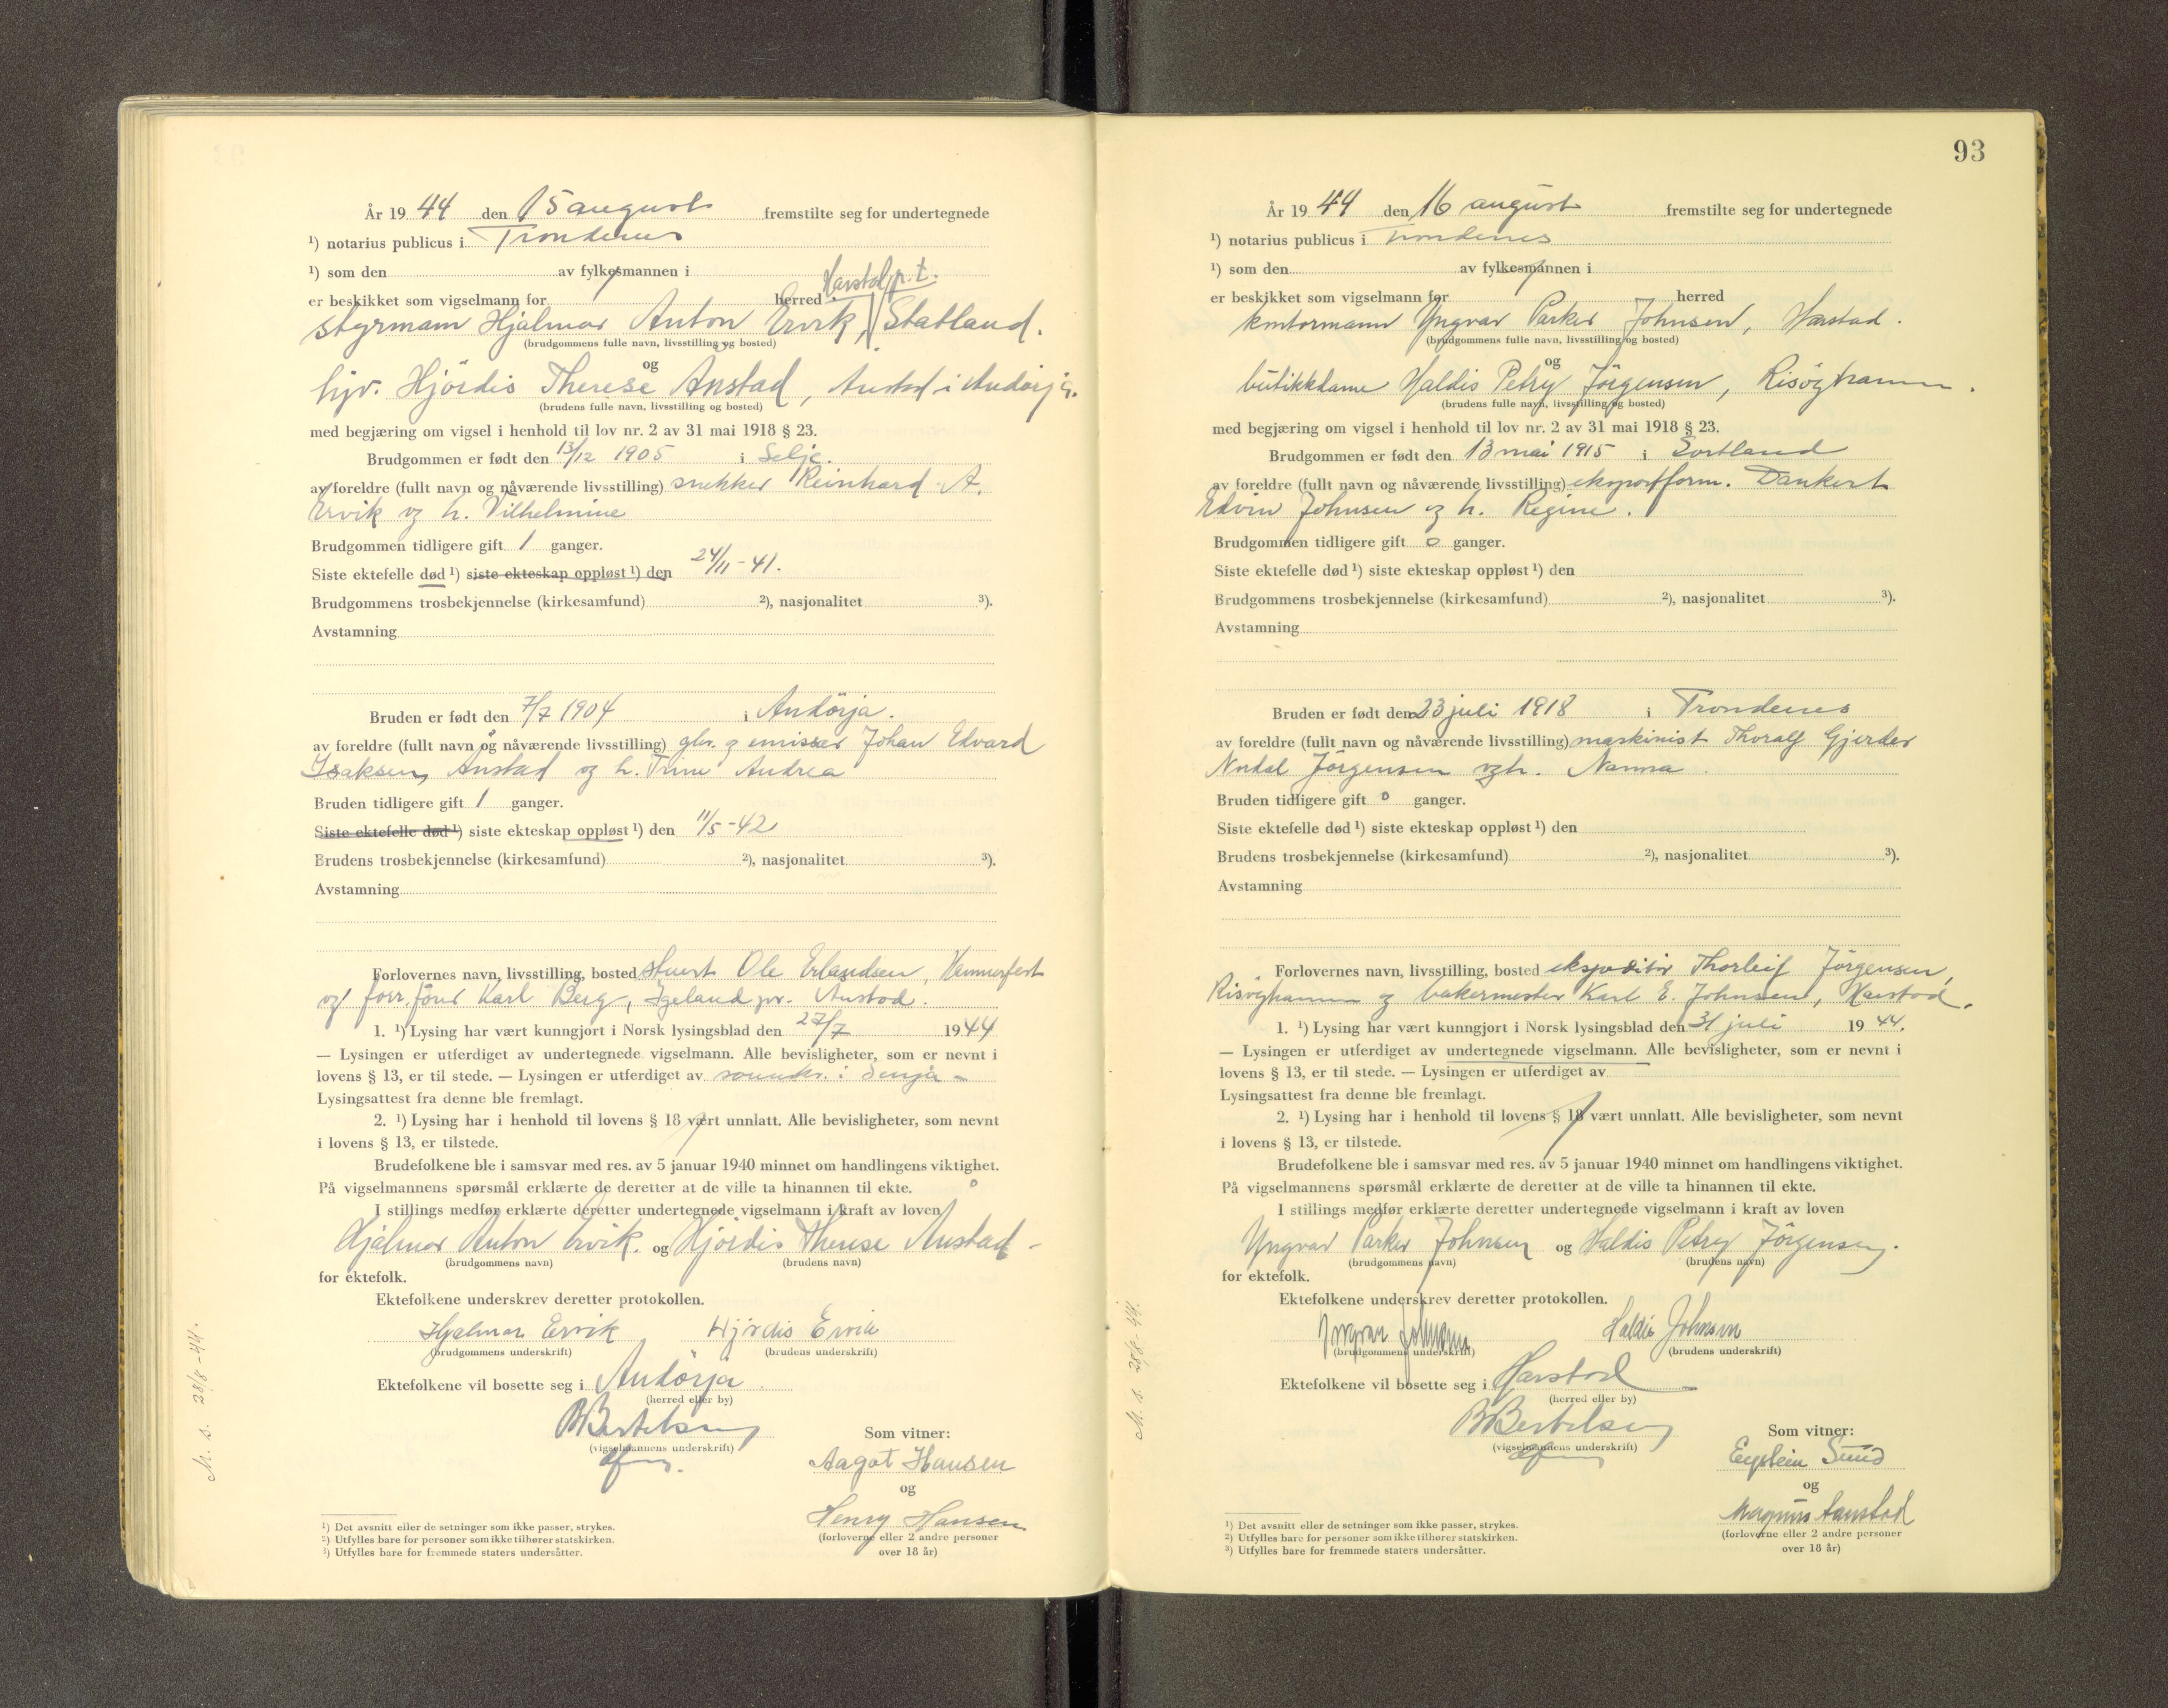 År 19 44 den 15 august fremstilte seg for undertegnede
¹) notarius publicus i Trondenes
¹) som den av fylkesmannen i
Harstad p.t.
er beskikket som vigselmann for herred
styrmann Hjalmar Anton Ervik, Statland.
(brudgommens fulle navn, livsstilling og bosted)
og
hjv. Hjördis Therese Ånstad, Ånstad i Andörja.
(brudens fulle navn, livsstilling og bosted)
med begjæring om vigsel i henhold til lov nr. 2 av 31 mai 1918 § 23.
Brudgommen er født den 13/12 1905 i Selje.
av foreldre (fullt navn og nåværende livsstilling) snekker Reinhard A.
Ervik og h. Vilhelmine
Brudgommen tidligere gift 1 ganger.
Siste ektefelle død ¹) siste ekteskap oppløst ¹) den 24/11-41.
Brudgommens trosbekjennelse (kirkesamfund) ²), nasjonalitet ³).
Avstamning
Bruden er født den 7/7 1904 i Andörja.
av foreldre (fullt navn og nåværende livsstilling) gbr. og emissær Johan Edvard
Isaksen Ånstad og h. Trine Andrea
Bruden tidligere gift 1 ganger.
Siste ektefelle død ¹) siste ekteskap oppløst ¹) den 11/5-42
Brudens trosbekjennelse (kirkesamfund) ²), nasjonalitet ³).
Avstamning
Forlovernes navn, livsstilling, bosted stuert Ole Erlandsen, Hammerfest
og forr.förer Karl Berg, Igeland pr. Ånstad.
1. ¹) Lysing har vært kunngjort i Norsk lysingsblad den 27/7 1944
— Lysingen er utferdiget av undertegnede vigselmann. Alle bevisligheter, som er nevnt i
lovens § 13, er til stede. — Lysingen er utferdiget av sorenskr. i Senja -
Lysingsattest fra denne ble fremlagt.
2. ¹) Lysing har i henhold til lovens § 18 vært unnlatt. Alle bevisligheter, som nevnt
i lovens § 13, er tilstede.
Brudefolkene ble i samsvar med res. av 5 januar 1940 minnet om handlingens viktighet.
På vigselmannens spørsmål erklærte de deretter at de ville ta hinannen til ekte.
I stillings medfør erklærte deretter undertegnede vigselmann i kraft av loven
Hjalmar Anton Ervik. og Hjördis Therese Ånstad -
(brudgommens navn) (brudens navn)
for ektefolk.
Ektefolkene underskrev deretter protokollen.
Hjalmar Ervik Hjördis Ervik
(brudgommens underskrift) (brudens underskrift)
Ektefolkene vil bosette seg i Andörja.
(herred eller by)
B Bertelsen
(vigselmannens underskrift)
Som vitner:
Aagot Hansen
og
Henry Hansen
(forloverne eller 2 andre personer
over 18 år)
¹) Det avsnitt eller de setninger som ikke passer, strykes.
²) Utfylles bare for personer som ikke tilhører statskirken.
³) Utfylles bare for fremmede staters undersåtter.
M. s. 28/8-44.
93
År 19 44 den 16 august fremstilte seg for undertegnede
¹) notarius publicus i Trondenes
¹) som den av fylkesmannen i
er beskikket som vigselmann for herred
kontormann Yngvar Parker Johnsen, Harstad.
(brudgommens fulle navn, livsstilling og bosted)
og
butikkdame Haldis Petry Jörgensen, Risöyhamn.
(brudens fulle navn, livsstilling og bosted)
med begjæring om vigsel i henhold til lov nr. 2 av 31 mai 1918 § 23.
Brudgommen er født den 13 mai 1915 i Sortland
av foreldre (fullt navn og nåværende livsstilling) eksportform. Dankert
Edvin Johnsen og h. Regine.
Brudgommen tidligere gift 0 ganger.
Siste ektefelle død ¹) siste ekteskap oppløst ¹) den
Brudgommens trosbekjennelse (kirkesamfund) ²), nasjonalitet ³).
Avstamning
Bruden er født den 23 juli 1918 i Trondenes
av foreldre (fullt navn og nåværende livsstilling) maskinist Thoralf Gjerder
Nordal Jörgensen og h. Nanna
Bruden tidligere gift 0 ganger.
Siste ektefelle død ¹) siste ekteskap oppløst ¹) den
Brudens trosbekjennelse (kirkesamfund) ²), nasjonalitet ³).
Avstamning
Forlovernes navn, livsstilling, bosted ekspeditör Thorleif Jörgensen,
Risöyhamn og bakermester Karl E. Johnsen, Harstad.
1. ¹) Lysing har vært kunngjort i Norsk lysingsblad den 31 juli 19 44.
— Lysingen er utferdiget av undertegnede vigselmann. Alle bevisligheter, som er nevnt i
lovens § 13, er til stede. — Lysingen er utferdiget av
Lysingsattest fra denne ble fremlagt.
2. ¹) Lysing har i henhold til lovens § 18 vært unnlatt. Alle bevisligheter, som nevnt
i lovens § 13, er tilstede.
Brudefolkene ble i samsvar med res. av 5 januar 1940 minnet om handlingens viktighet.
På vigselmannens spørsmål erklærte de deretter at de ville ta hinannen til ekte.
I stillings medfør erklærte deretter undertegnede vigselmann i kraft av loven
Yngvar Parker Johnsen og Haldis Petry Jörgensen.
(brudgommens navn) (brudens navn)
for ektefolk.
Ektefolkene underskrev deretter protokollen.
Yngvar Johnsen Haldis Johnsen
(brudgommens underskrift) (brudens underskrift)
Ektefolkene vil bosette seg i Harstad
(herred eller by)
B Bertelsen
(vigselmannens underskrift)
Som vitner:
Eystein Sund
og
Magnus Aanstad
(forloverne eller 2 andre personer
over 18 år)
¹) Det avsnitt eller de setninger som ikke passer, strykes.
²) Utfylles bare for personer som ikke tilhører statskirken.
³) Utfylles bare for fremmede staters undersåtter.
M. s. 28/8-44.